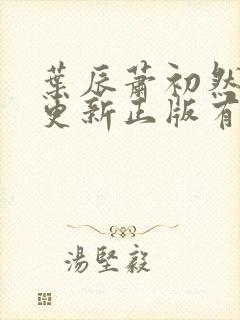 葉辰蕭初然
更新正版有
湯堅毅